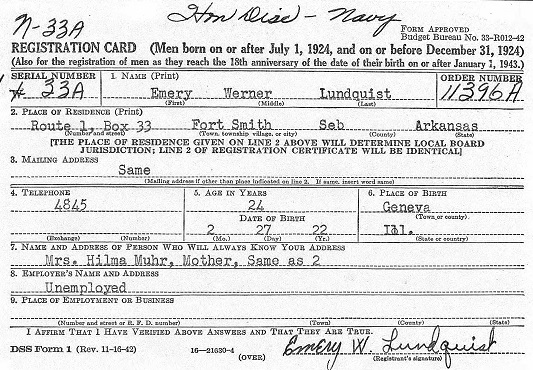 N-33A
Hon Disc - Navy
FORM APPROVED
Budget Bureau No. 33-R012-42
REGISTRATION CARD (Men born on or after July 1, 1924, and on or before December 31, 1924)
(Also for the registration of men as they reach the 18th anniversary of the date of their birth on or after January 1, 1943.)
SERIAL NUMBER 1. NAME (Print) ORDER NUMBER
# 33A Emery Werner Lundquist 11396A
(First) (Middle) (Last)
2. PLACE OF RESIDENCE (Print)
Route 1, Box 33 Fort Smith Seb Arkansas
(Number and street) (Town, township village, or city) (County) (State)
[THE PLACE OF RESIDENCE GIVEN ON LINE 2 ABOVE WILL DETERMINE LOCAL BOARD
JURISDICTION; LINE 2 OF REGISTRATION CERTIFICATE WILL BE IDENTICAL]
3. MAILING ADDRESS
Same
(Mailing address if other than place indicated on line 2. If same, insert word same)
4. TELEPHONE 5. AGE IN YEARS 6. PLACE OF BIRTH
4845 24 Geneva
DATE OF BIRTH (Town or county)
2 27 22 Ill.
(Exchange) (Number) (Mo.) (Day) (Yr.) (State or country)
7. NAME AND ADDRESS OF PERSON WHO WILL ALWAYS KNOW YOUR ADDRESS
Mrs. Hilma Muhr, Mother, Same as 2
8. EMPLOYER'S NAME AND ADDRESS
Unemployed
9. PLACE OF EMPLOYMENT OR BUSINESS
(Number and street or R. F. D. number) (Town) (County) (State)
I AFFIRM THAT I HAVE VERIFIED ABOVE ANSWERS AND THAT THEY ARE TRUE.
DSS Form 1 (Rev. 11-16-42) 16-21630-4 Emery W. Lundquist
(OVER) (Registrant's signature)